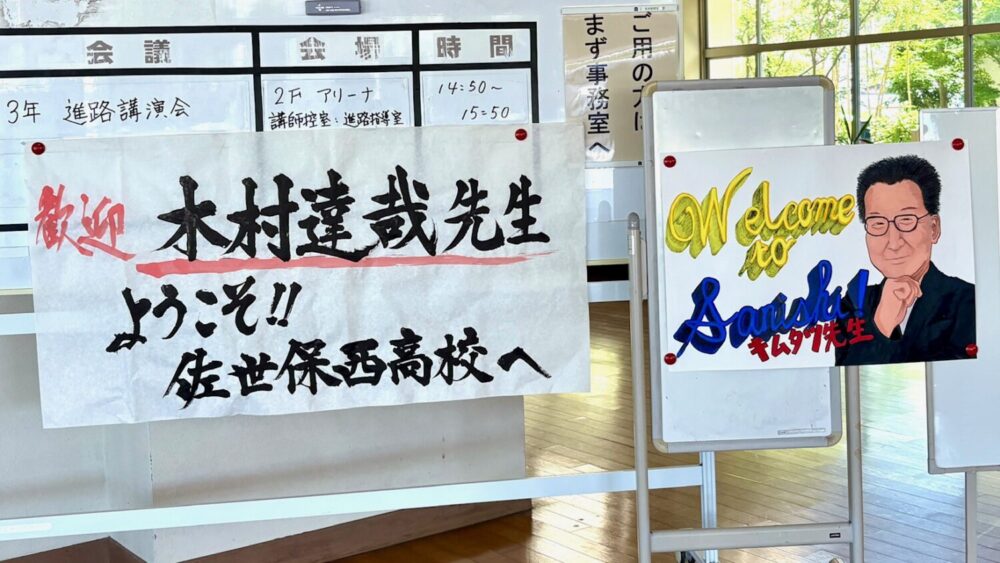 会議 会場 時間
3年 進路講演会
2F アリーナ
講師控室:進路指導室
14:50~
15:50
ご用の方は
まず事務室へ
歓迎 木村達哉先生
ようこそ!!
佐世保西高校へ
Welcome
to
Sanishi!
キムタツ先生